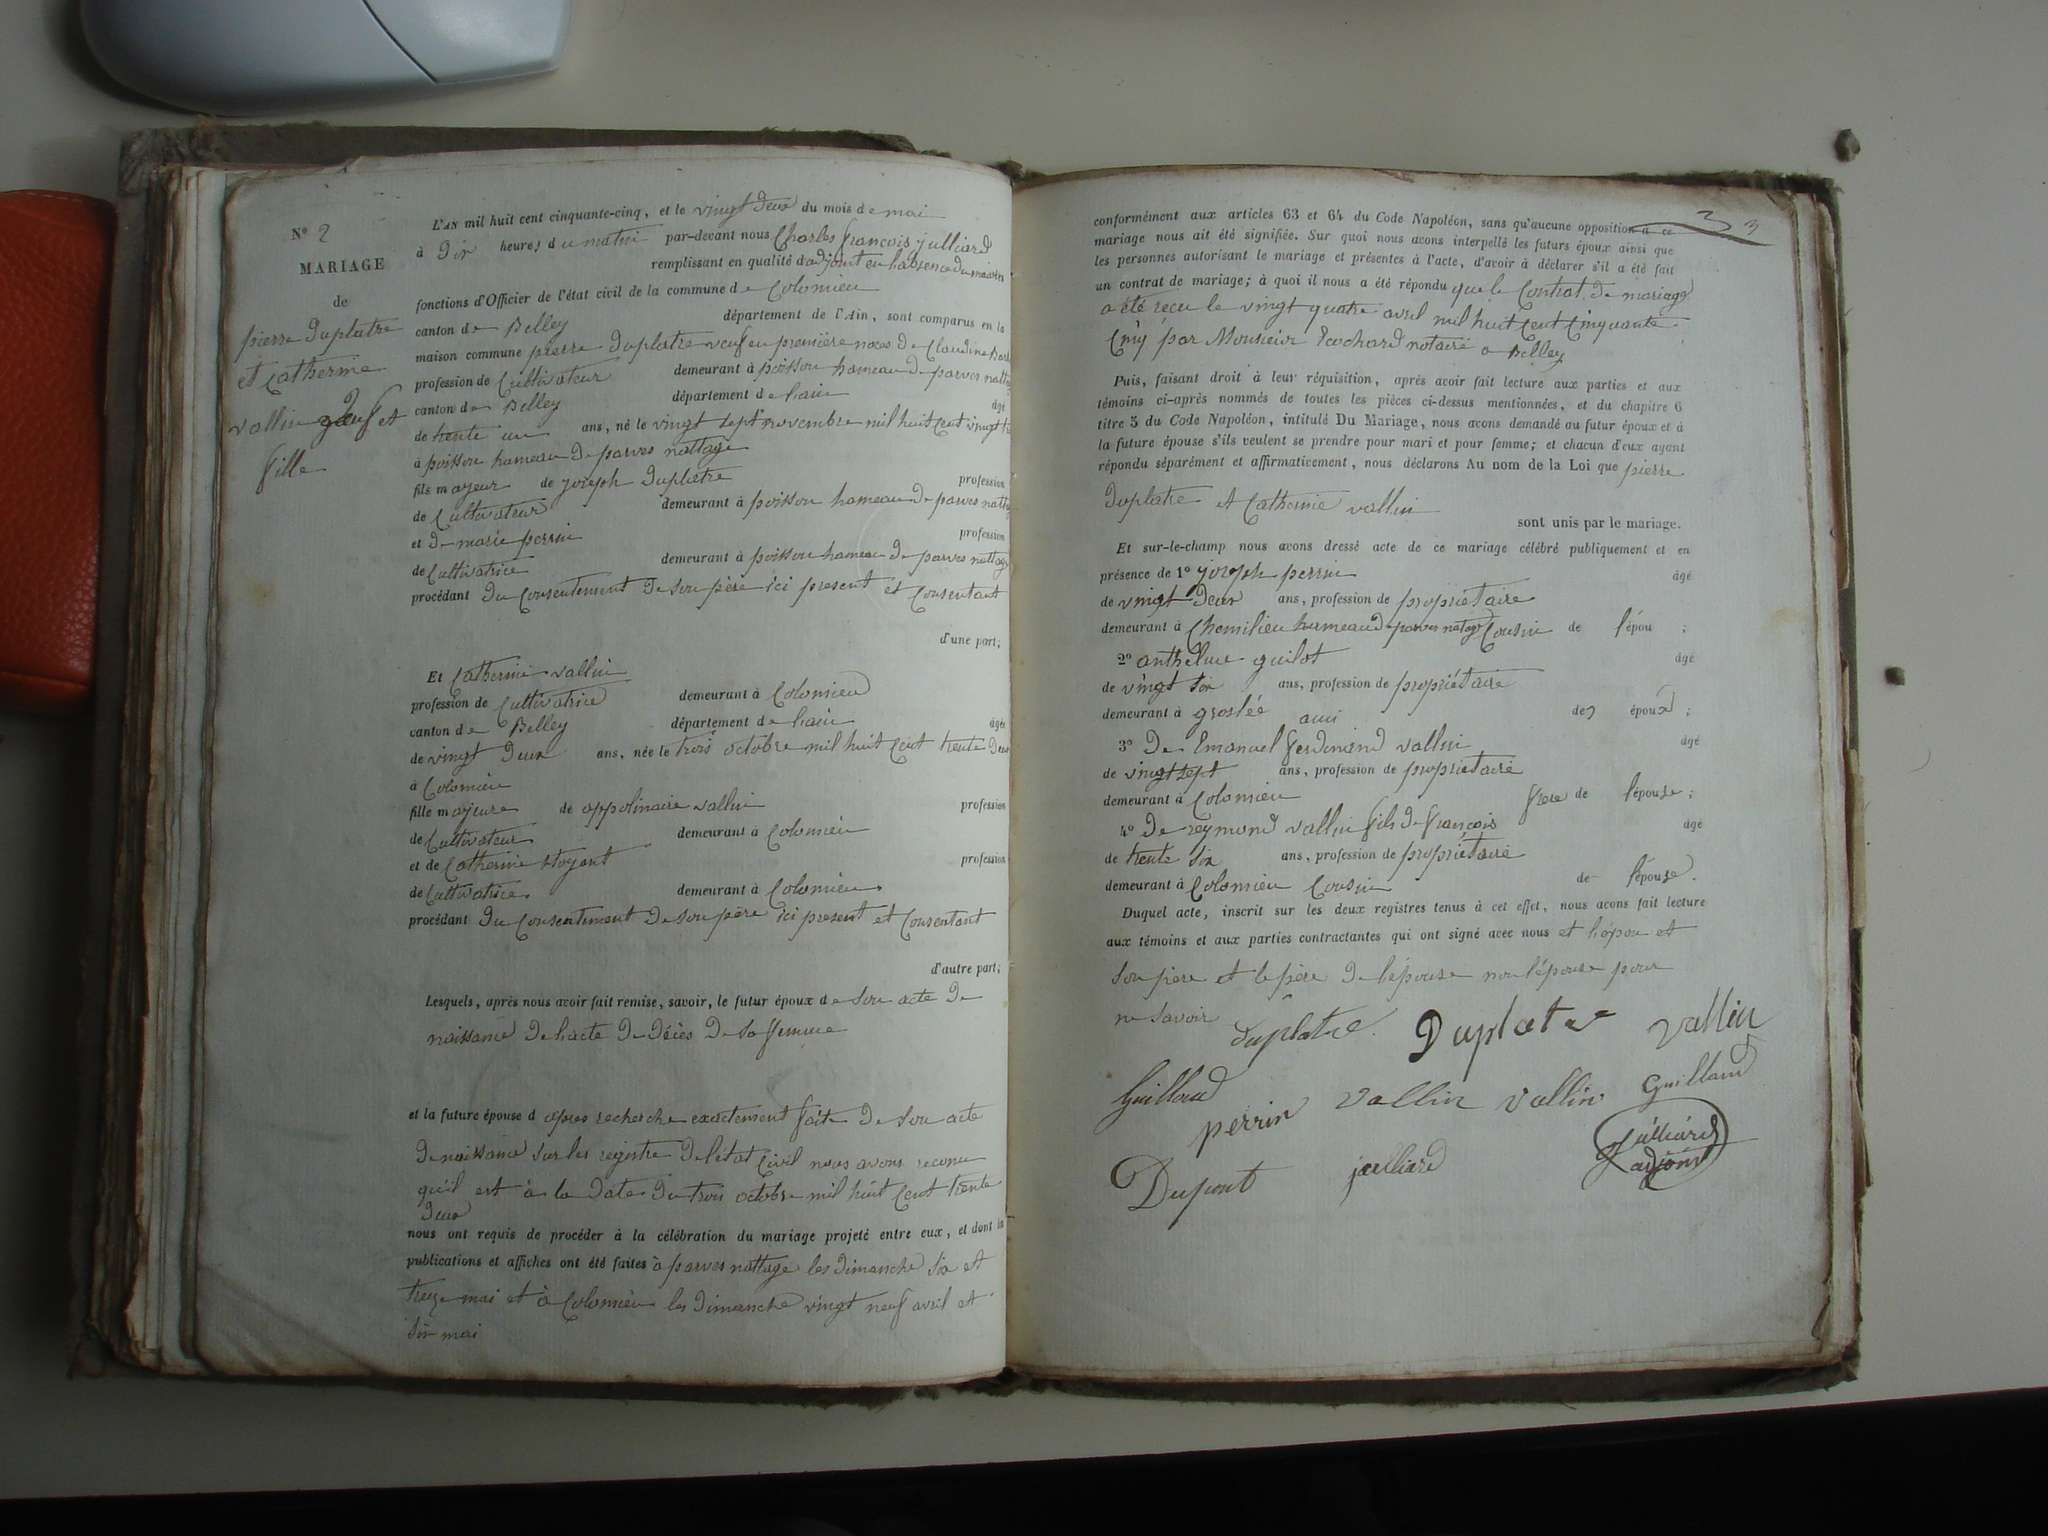 N° 2
MARIAGE
de
pierre duplatre
et Catherine
vallin veuf et
fille
L'AN mil huit cent cinquante-cinq, et le vingt deux du mois de mai
à Dix heures du matin par-devant nous Charles francois julliard
remplissant en qualité d'adjoint en l'absence du maire
fonctions d'Officier de l'état civil de la commune de Colomieu
canton de Belley département de l'Ain, sont comparus en la
maison commune pierre duplatre veuf en première noces de Claudine
profession de Cultivateur demeurant à poisson hameau de parves
canton de Belley département de lain âgé
de trente un ans, né le vingt sept novembre mil huit cent vingt
à poisson hameau de parves nattage
fils majeur de joseph duplatre profession
de Cultivateur demeurant à poisson hameau de parves
et de marie perrin profession
de Cultivatrice demeurant à poisson hameau de parves nattage
procédant du Consentement de son père ici present et Consentant
d'une part;
Et Catherine vallin
profession de Cultivatrice demeurant à Colomieu
canton de Belley département de lain âgée
de vingt deux ans, née le trois octobre mil huit cent trente deux
à Colomieu
fille majeure de appolinaire vallin profession
de Cultivateur demeurant à Colomieu
et de Catherine profession
de Cultivatrice demeurant à Colomieu
procédant du Consentement de son père ici present et Consentant
d'autre part;
Lesquels, après nous avoir fait remise, savoir, le futur époux de son acte de
naissance de lacte de décès de sa femme
et la future épouse d apres recherche exactement faite de son acte
de naissance sur les registre de létat Civil nous avons reconu
qu'il est à la date du trois octobre mil huit cent trente
deux
nous ont requis de procéder à la célébration du mariage projeté entre eux, et dont les
publications et affiches ont été faites à parves nattage les dimanche six et
treize mai et à Colomieu les dimanche vingt neuf avril et
six mai
3 3
conformément aux articles 63 et 64 du Code Napoléon, sans qu'aucune opposition à ce
mariage nous ait été signifiée. Sur quoi nous avons interpellé les futurs époux ainsi que
les personnes autorisant le mariage et présentes à l'acte, d'avoir à déclarer s'il a été fait
un contrat de mariage; à quoi il nous a été répondu que le Contrat de mariage
a été reçu le vingt quatre avril mil huit cent Cinquante
Cinq par Monsieur notaire a Belley
Puis, faisant droit à leur réquisition, après avoir fait lecture aux parties et aux
témoins ci-après nommés de toutes les pièces ci-dessus mentionnées, et du chapitre 6
titre 5 du Code Napoléon, intitulé Du Mariage, nous avons demandé au futur époux et à
la future épouse s'ils veulent se prendre pour mari et pour femme; et chacun d'eux ayant
répondu séparément et affirmativement, nous déclarons Au nom de la Loi que pierre
duplatre et Catherine vallin
sont unis par le mariage.
Et sur-le-champ nous avons dressé acte de ce mariage célébré publiquement et en
présence de 1° joseph perrin âgé
de vingt deux ans, profession de propriétaire
demeurant à Chemilieu hameau de parves nattage Cousin de l'épou ;
2° anthelme guilot âgé
de vingt six ans, profession de propriétaire
demeurant à groslée ami des époux ;
3° De Emanuel ferdinand vallin âgé
de vingt sept ans, profession de propriétaire
demeurant à Colomieu frere de l'épouse ;
4° De reymond vallin fils de françois âgé
de trente six ans, profession de propriétaire
demeurant à Colomieu Cousin de l'épouse.
Duquel acte, inscrit sur les deux registres tenus à cet effet, nous avons fait lecture
aux témoins et aux parties contractantes qui ont signé avec nous et lépou et
son père et le père de l'épouse non l'épouse pour
ne savoir
duplatre Duplatre vallin
Guilloud perrin vallin vallin Guilland
Dupont juilliard Julliard
adjoint